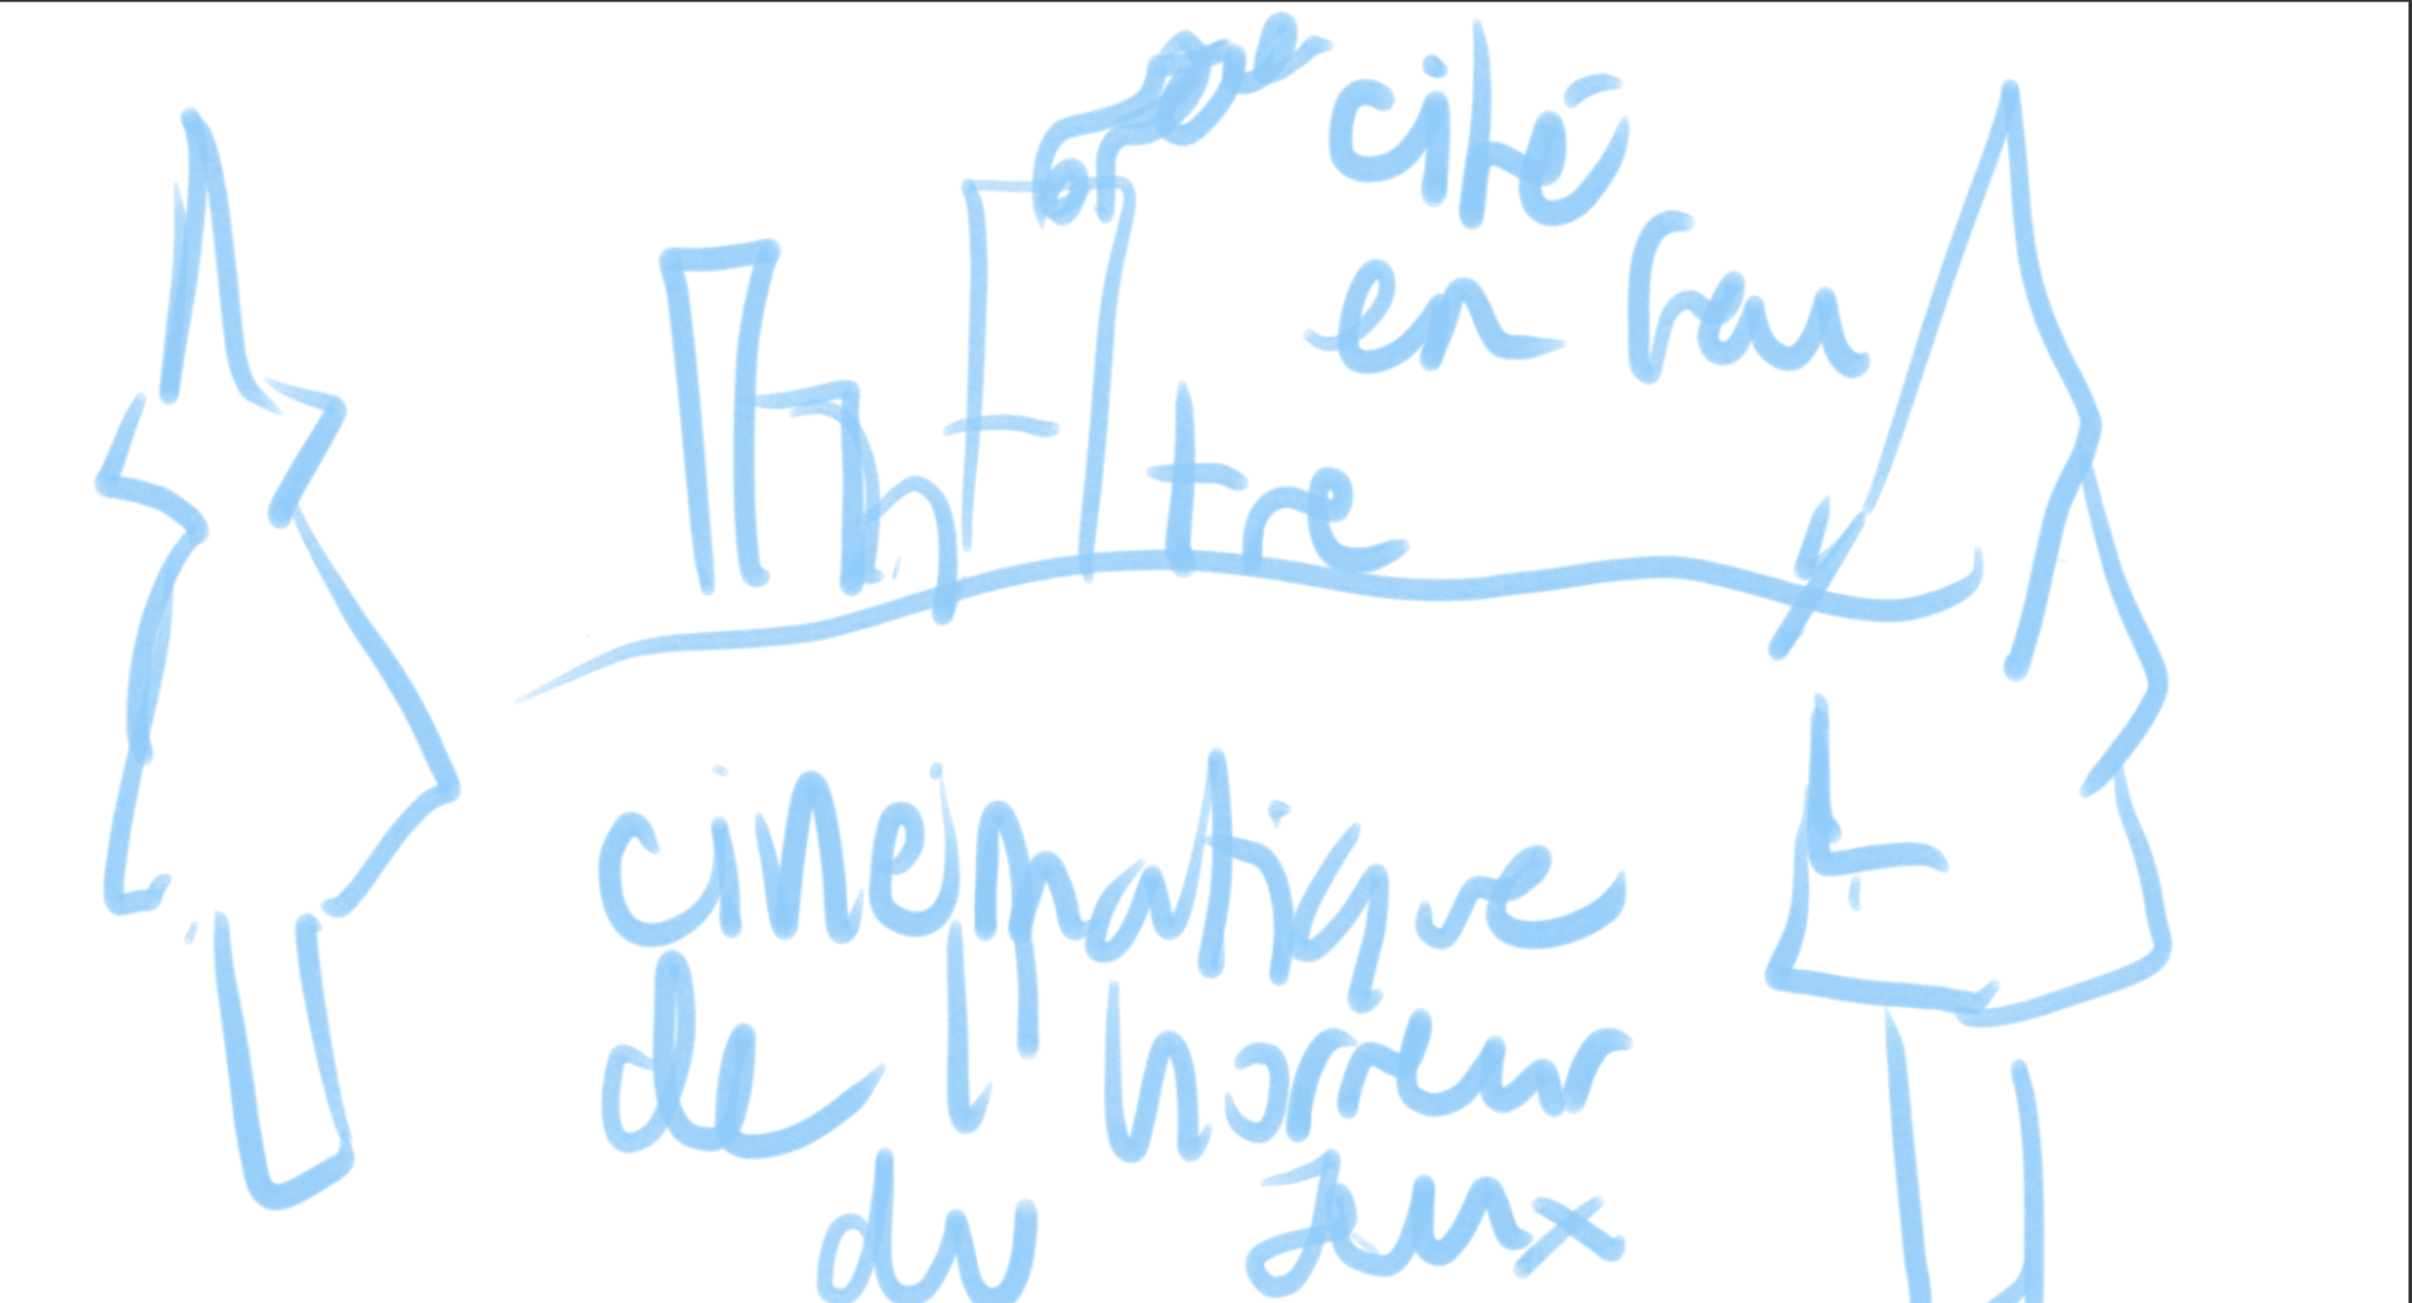 cité
en feu
tre
cinématique
de l'horreur
du Jeux